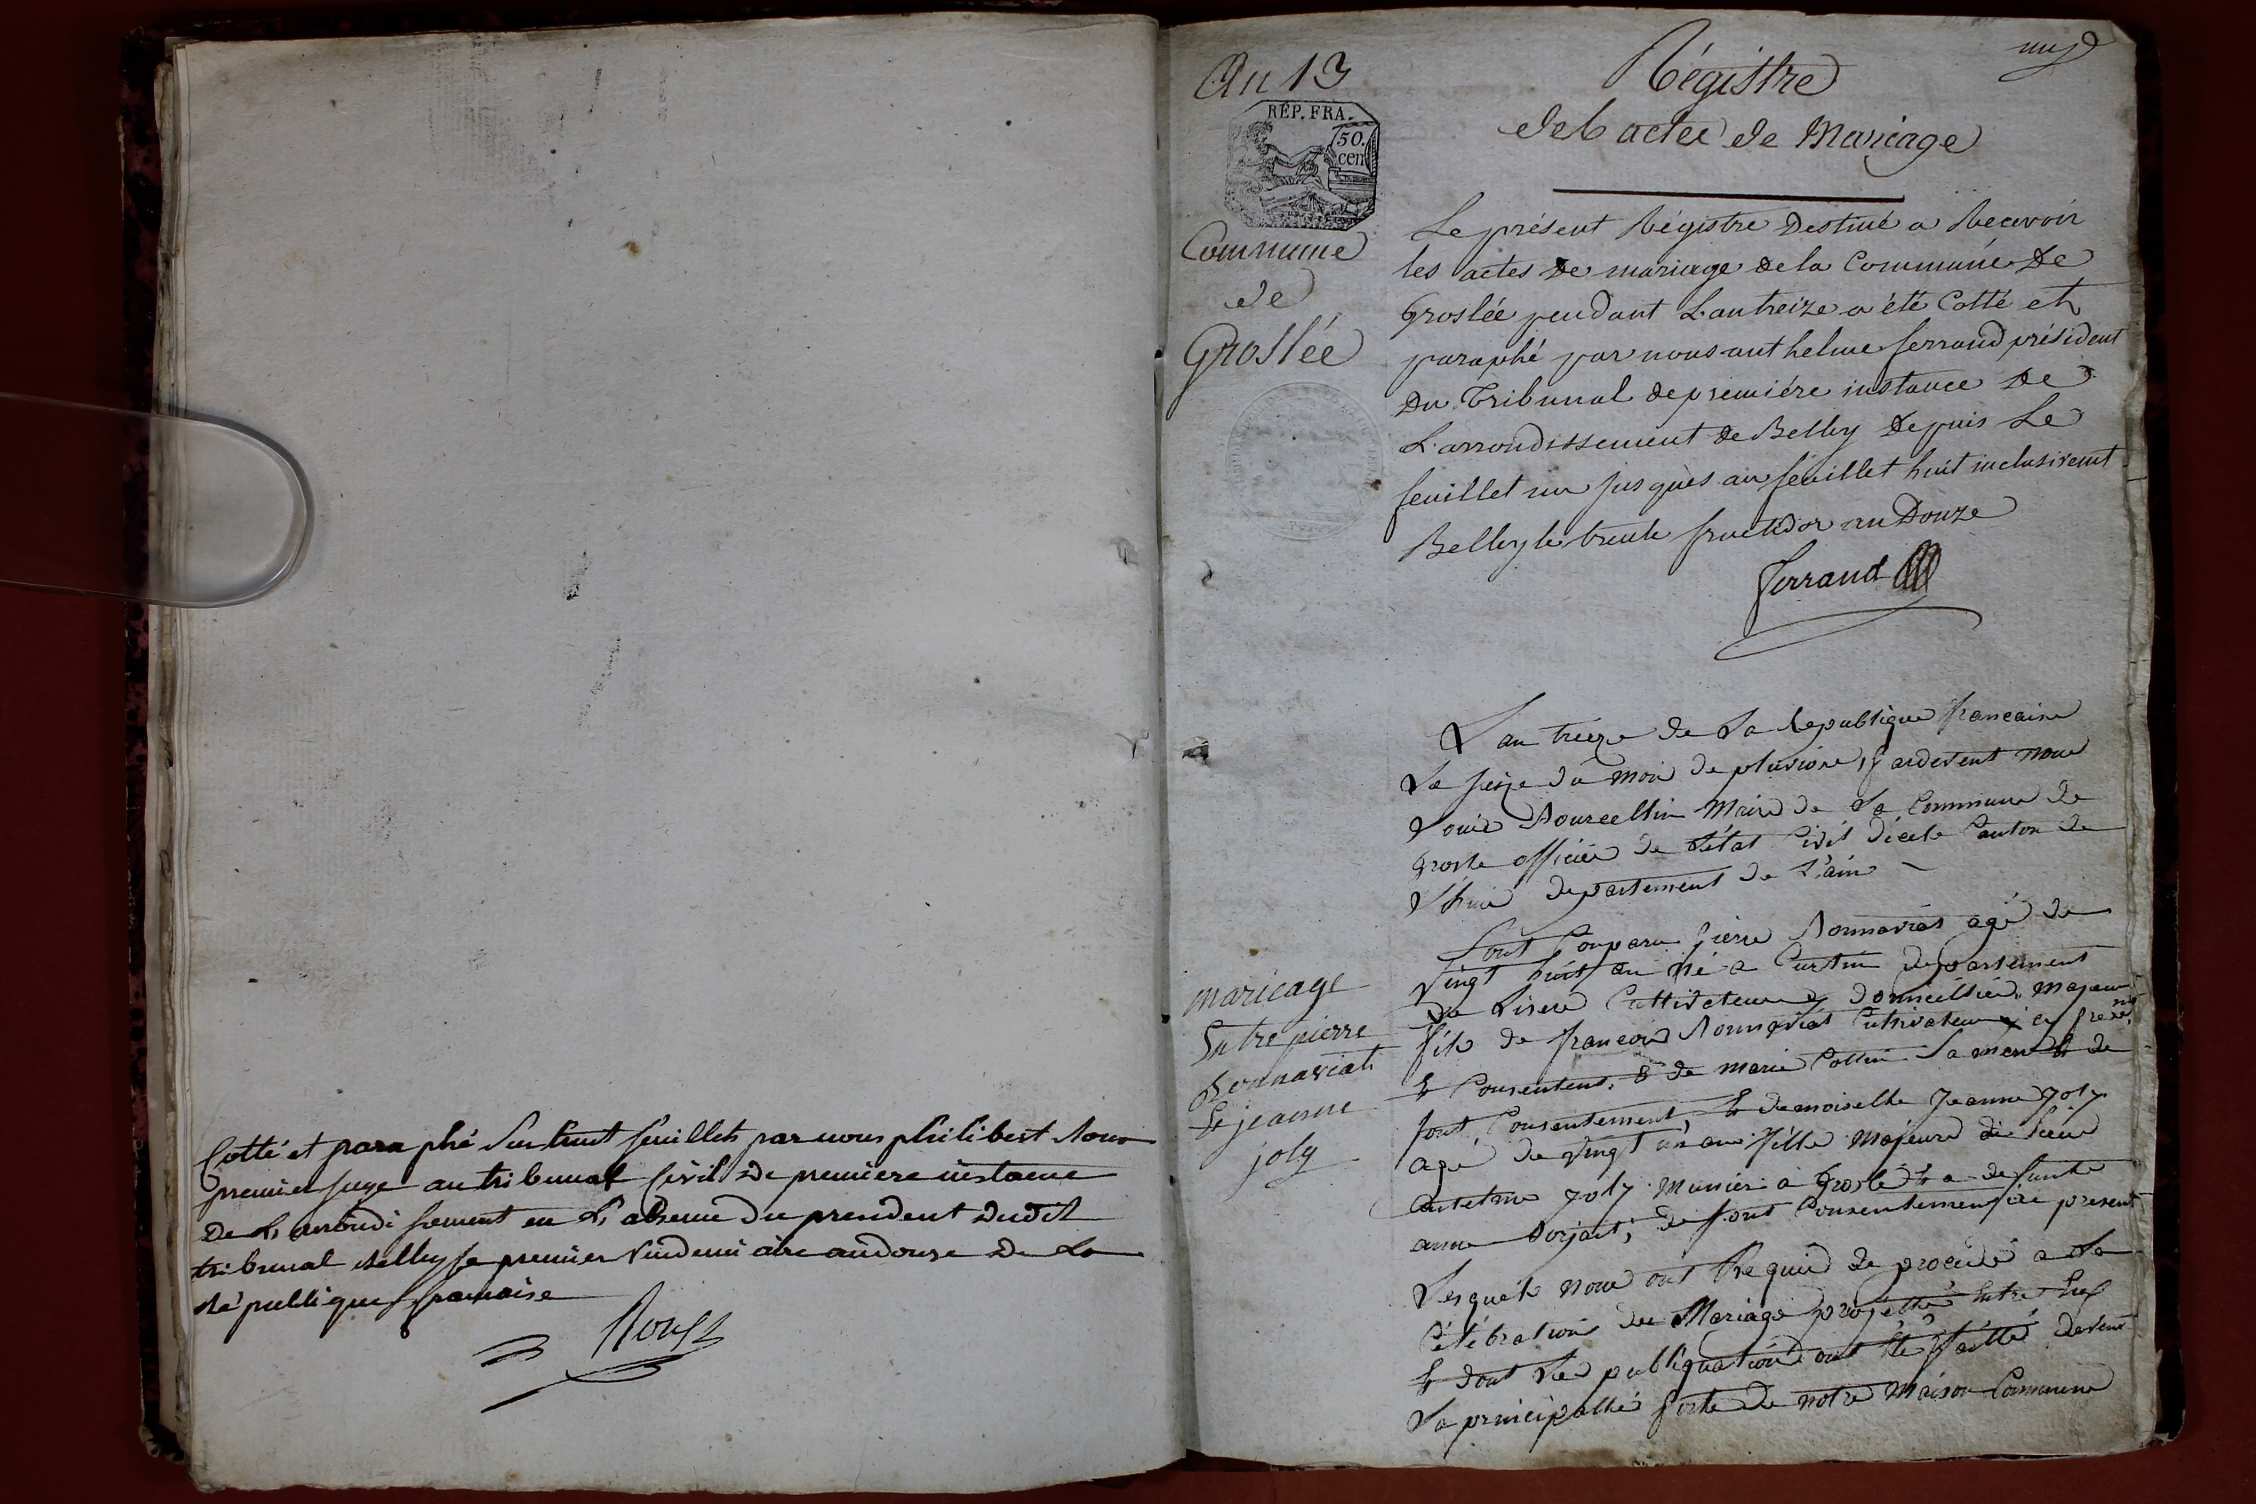 Cotté et paraphé sur huit feuillets par nous philibert Roux
premier juge au tribunal Civil de premiere instance
de L'arrondissement en L'absence du president dudit
tribunal Belley le premier vindemiaire an douse de La
République francaise
Roux
un
An 13
RÉP. FRA.
50.
cen
Commune
de
Groslée
Régistre
des actes de Mariage
Le présent Régistre Destiné a Recevoir
les actes de mariage de la Commune De
Groslée pendant L'an treize a été Cotté et
paraphé par nous anthelme ferrand président
Du Tribunal de premiére instance De
L'arrondissement de Belley Depuis Le
feuillet un jusques au feuillet huit inclusivemt
Belley le trente fructidor an Douze
ferrand
L'an treize de La republique francaise
Le seize du mois de pluviose, pardevent nous
Louis Mairs de La Commune de
Grosle officier de L'état Civil dicele Canton de
Lhuis departement de L'ain
mariage
Entre pierre
Bonnaviat
Et jeanne
joly
Sont Comparu pierre Bonnaviat agé de
vingt huit an né a Curtin departement
de Lisere Cultivateur y domicillié, Majeur
fils de francois Bonnaviat Cultivateur y presen
Et Consentent, & de marie Collin Sa mere & de
font Consentement Et demoiselle Jeanne Joly
agé de vingt un an fille Majeure de sieur
antelme Joly Munier a Grosle Et a defunte
anne de sont Consentement presents
Lesquels nous ont Requis de procedé a La
Célébration du Mariage projetté Entre Eux
Et dont Les publiquations ont été faitte devent
La principalle porte de notre Maison Commune